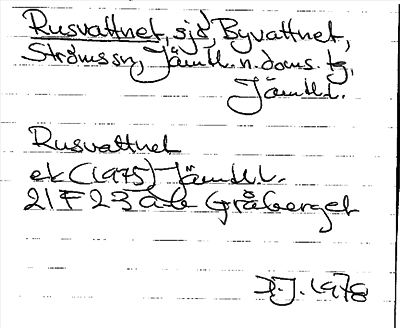 Rusvattnet, sjö, Byvattnet,
Strömssn, Jämtl. n. doms. tg,
Jämtl.
Rusvattnet
ek (1975) Jämtl.
21 F 23 a-b Gråberget
D.J. 1978